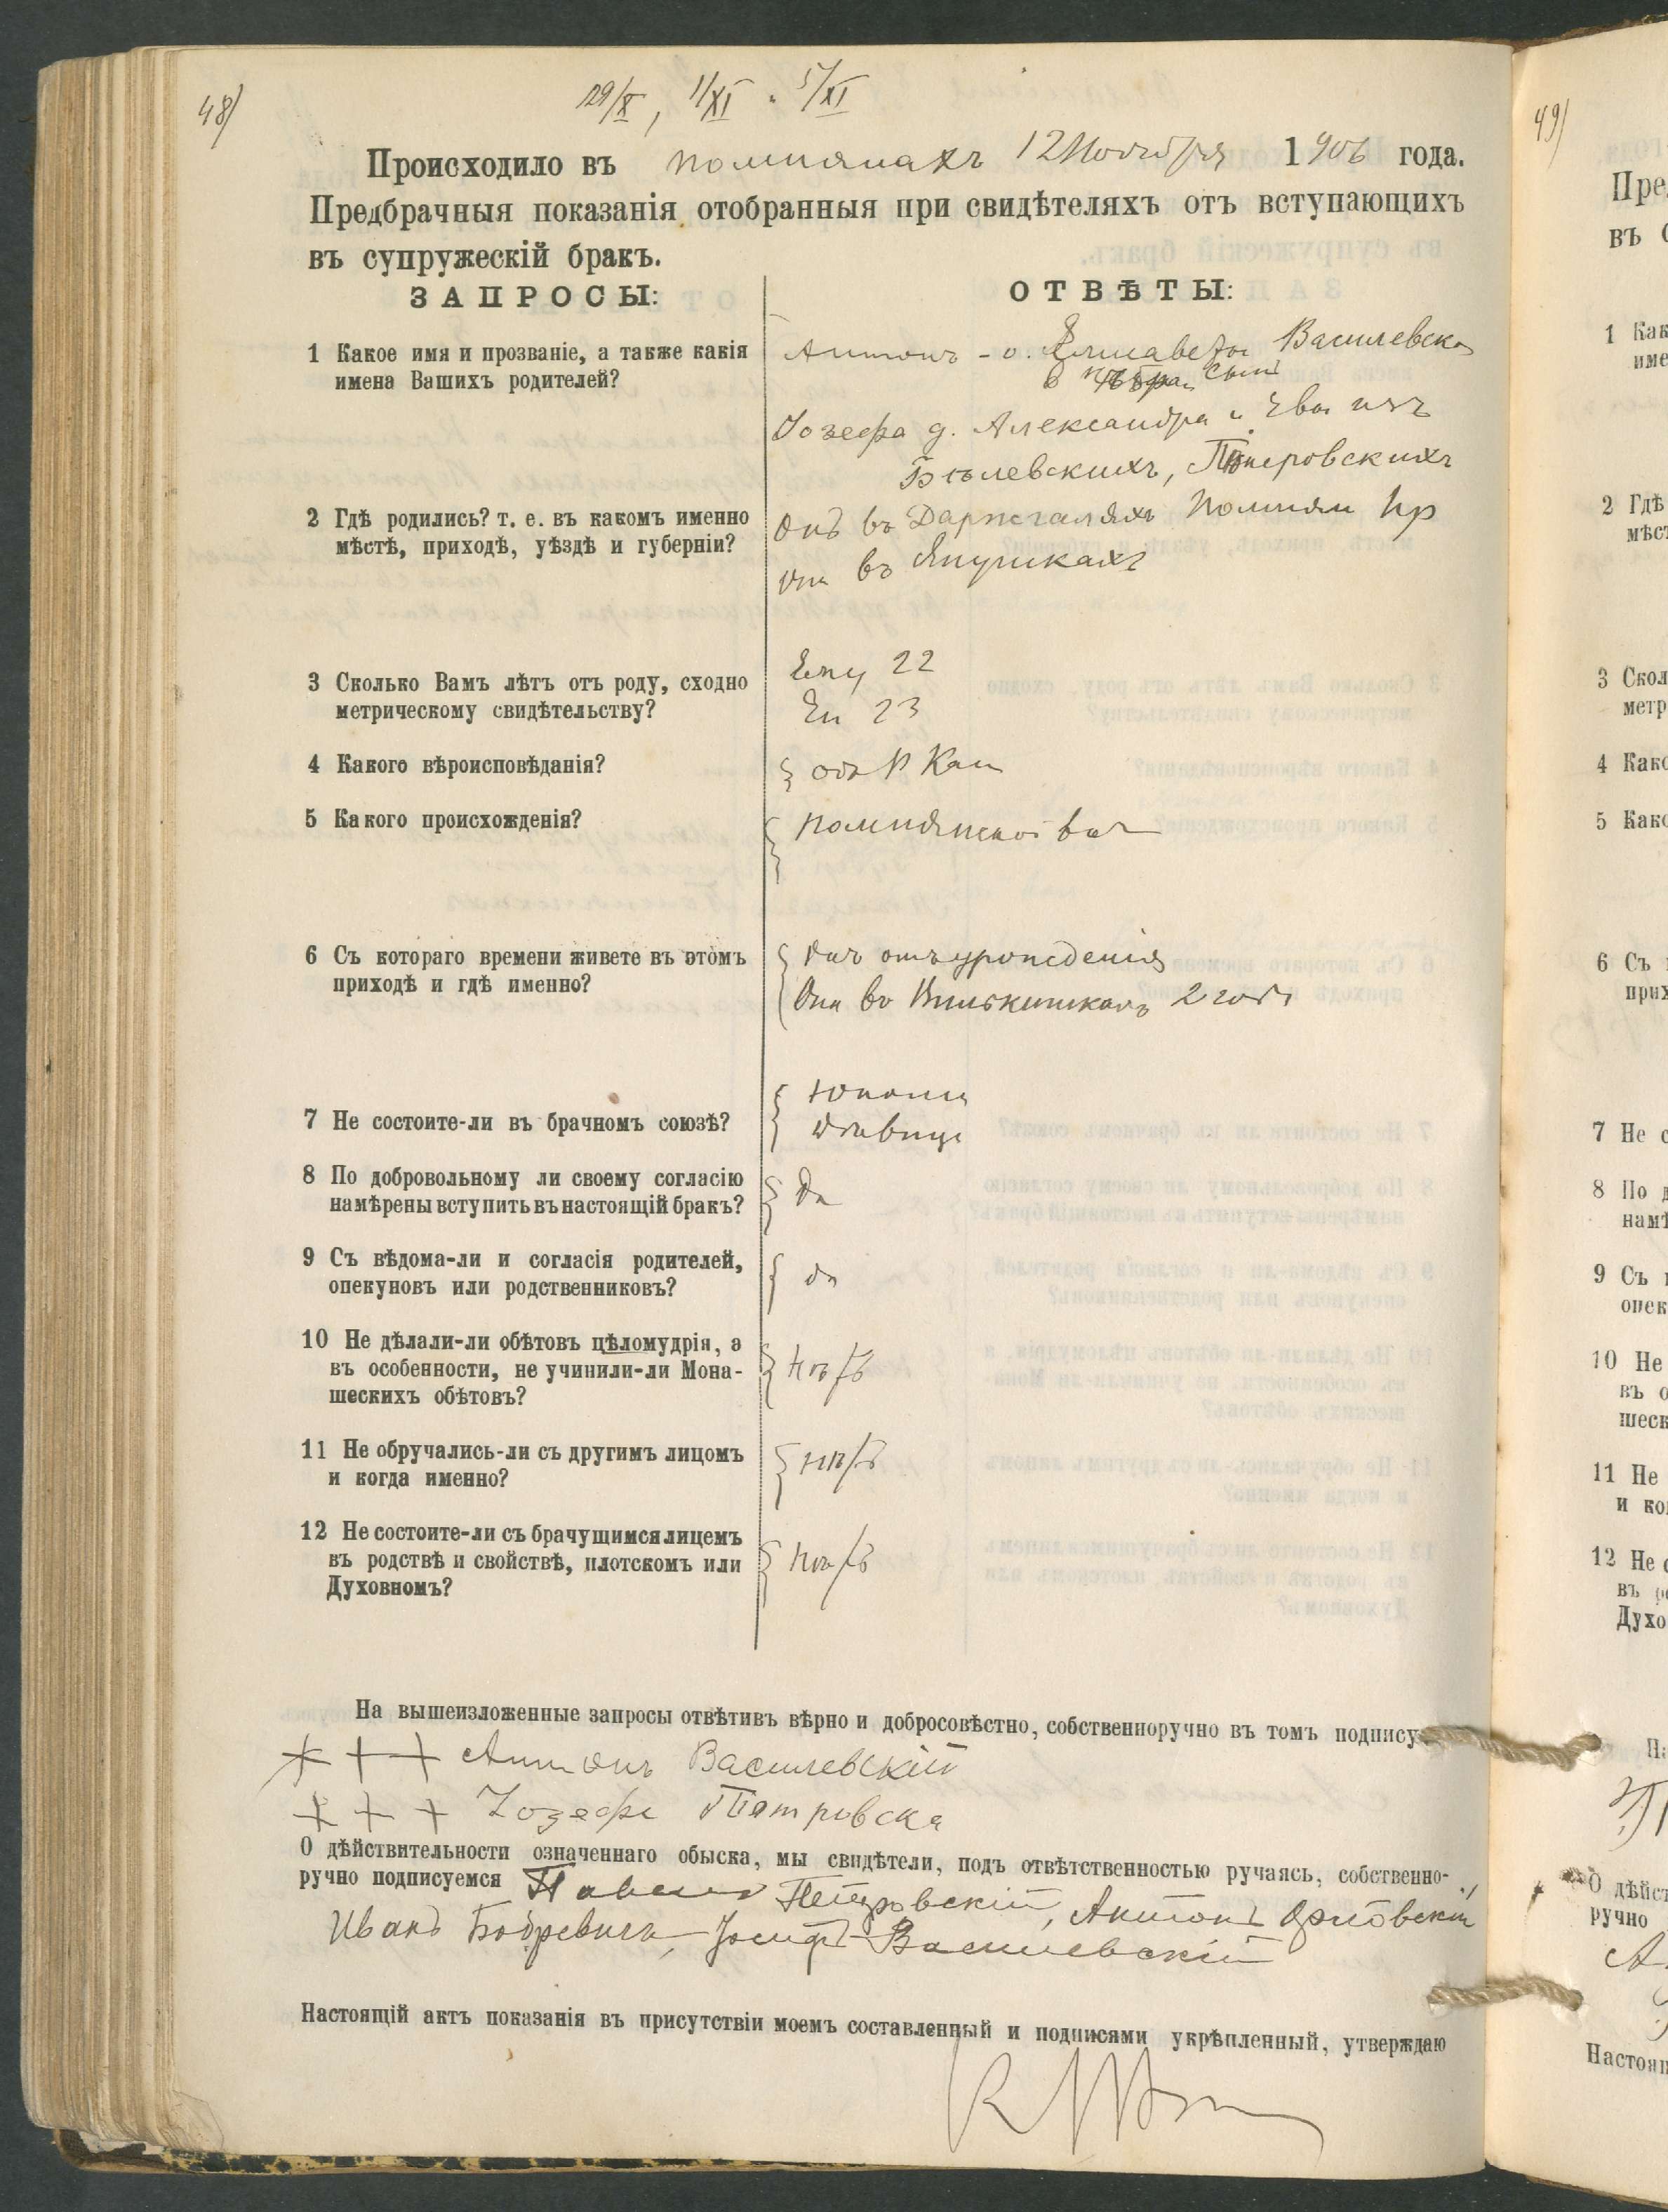 48)
29/X, 1/XI. 5/XI
Происходило въ Помпянахъ 12 Ноября 1906 года.
Предбрачныя показанія отобранныя при свидѣтеляхъ отъ вступающихъ
въ супружескій бракъ.
ЗАПРОСЫ:
ОТВѢТЫ:
1 Какое имя и прозваніе, а также какія
имена Вашихъ родителей?
Антонъ - с. Елисаветы Василевска
сын
Іозефа д. Александра и Евы изъ
Бѣлевскихъ,
2 Гдѣ родились? т. е. въ какомъ именно
мѣстѣ, приходѣ, уѣздѣ и губерніи?
Онъ въ Даржгаляхъ Помпян пр
Она въ Янушкахъ
3 Сколько Вамъ лѣтъ отъ роду, сходно
метрическому свидѣтельству?
Ему 22
Ей 23
4 Какого вѣроисповѣданія?
оба Р Кат
5 Какого происхожденія?
Помпянской вол
6 Съ котораго времени живете въ этомъ
приходѣ и гдѣ именно?
Онъ отъ урожденія
Она во 2 года
7 Не состоите-ли въ брачномъ союзѣ?
Юноша
Дѣвица
8 По добровольному ли своему согласію
намѣрены вступить въ настоящій бракъ?
Да
9 Съ вѣдома-ли и согласія родителей,
опекуновъ или родственниковъ?
да
10 Не дѣлали-ли обѣтовъ цѣломудрія, а
въ особенности, не учинили-ли Мона-
шескихъ обѣтовъ?
Нѣтъ
11 Не обручались-ли съ другимъ лицомъ
и когда именно?
нѣтъ
12 Не состоите-ли съ брачущимся лицемъ
въ родствѣ и свойствѣ, плотскомъ или
Духовномъ?
Нѣтъ
На вышеизложенные запросы отвѣтивъ вѣрно и добросовѣстно, собственноручно въ томъ подпису
+ + + Антонъ Василевскій
+ + + Іозефа Пятровска
О дѣйствительности означеннаго обыска, мы свидѣтели, подъ отвѣтственностью ручаясь, собственно-
ручно подписуемся Павелъ Петровскій, Антонъ Орловскій
Иванъ Бобревичъ, Іосифъ Василевскій
Настоящій актъ показанія въ присутствіи моемъ составленный и подписями укрѣпленный, утверждаю
49)
Пре
въ
1 Как
име
2 Гдѣ
мѣст
3 Скол
метр
4 Како
5 Како
6 Съ
прих
7 Не с
8 По д
намѣ
9 Съ
опек
10 Не
въ о
шеск
11 Не
и ко
12 Не с
въ р
Духо
На
О дѣйст
ручно
Настоящ